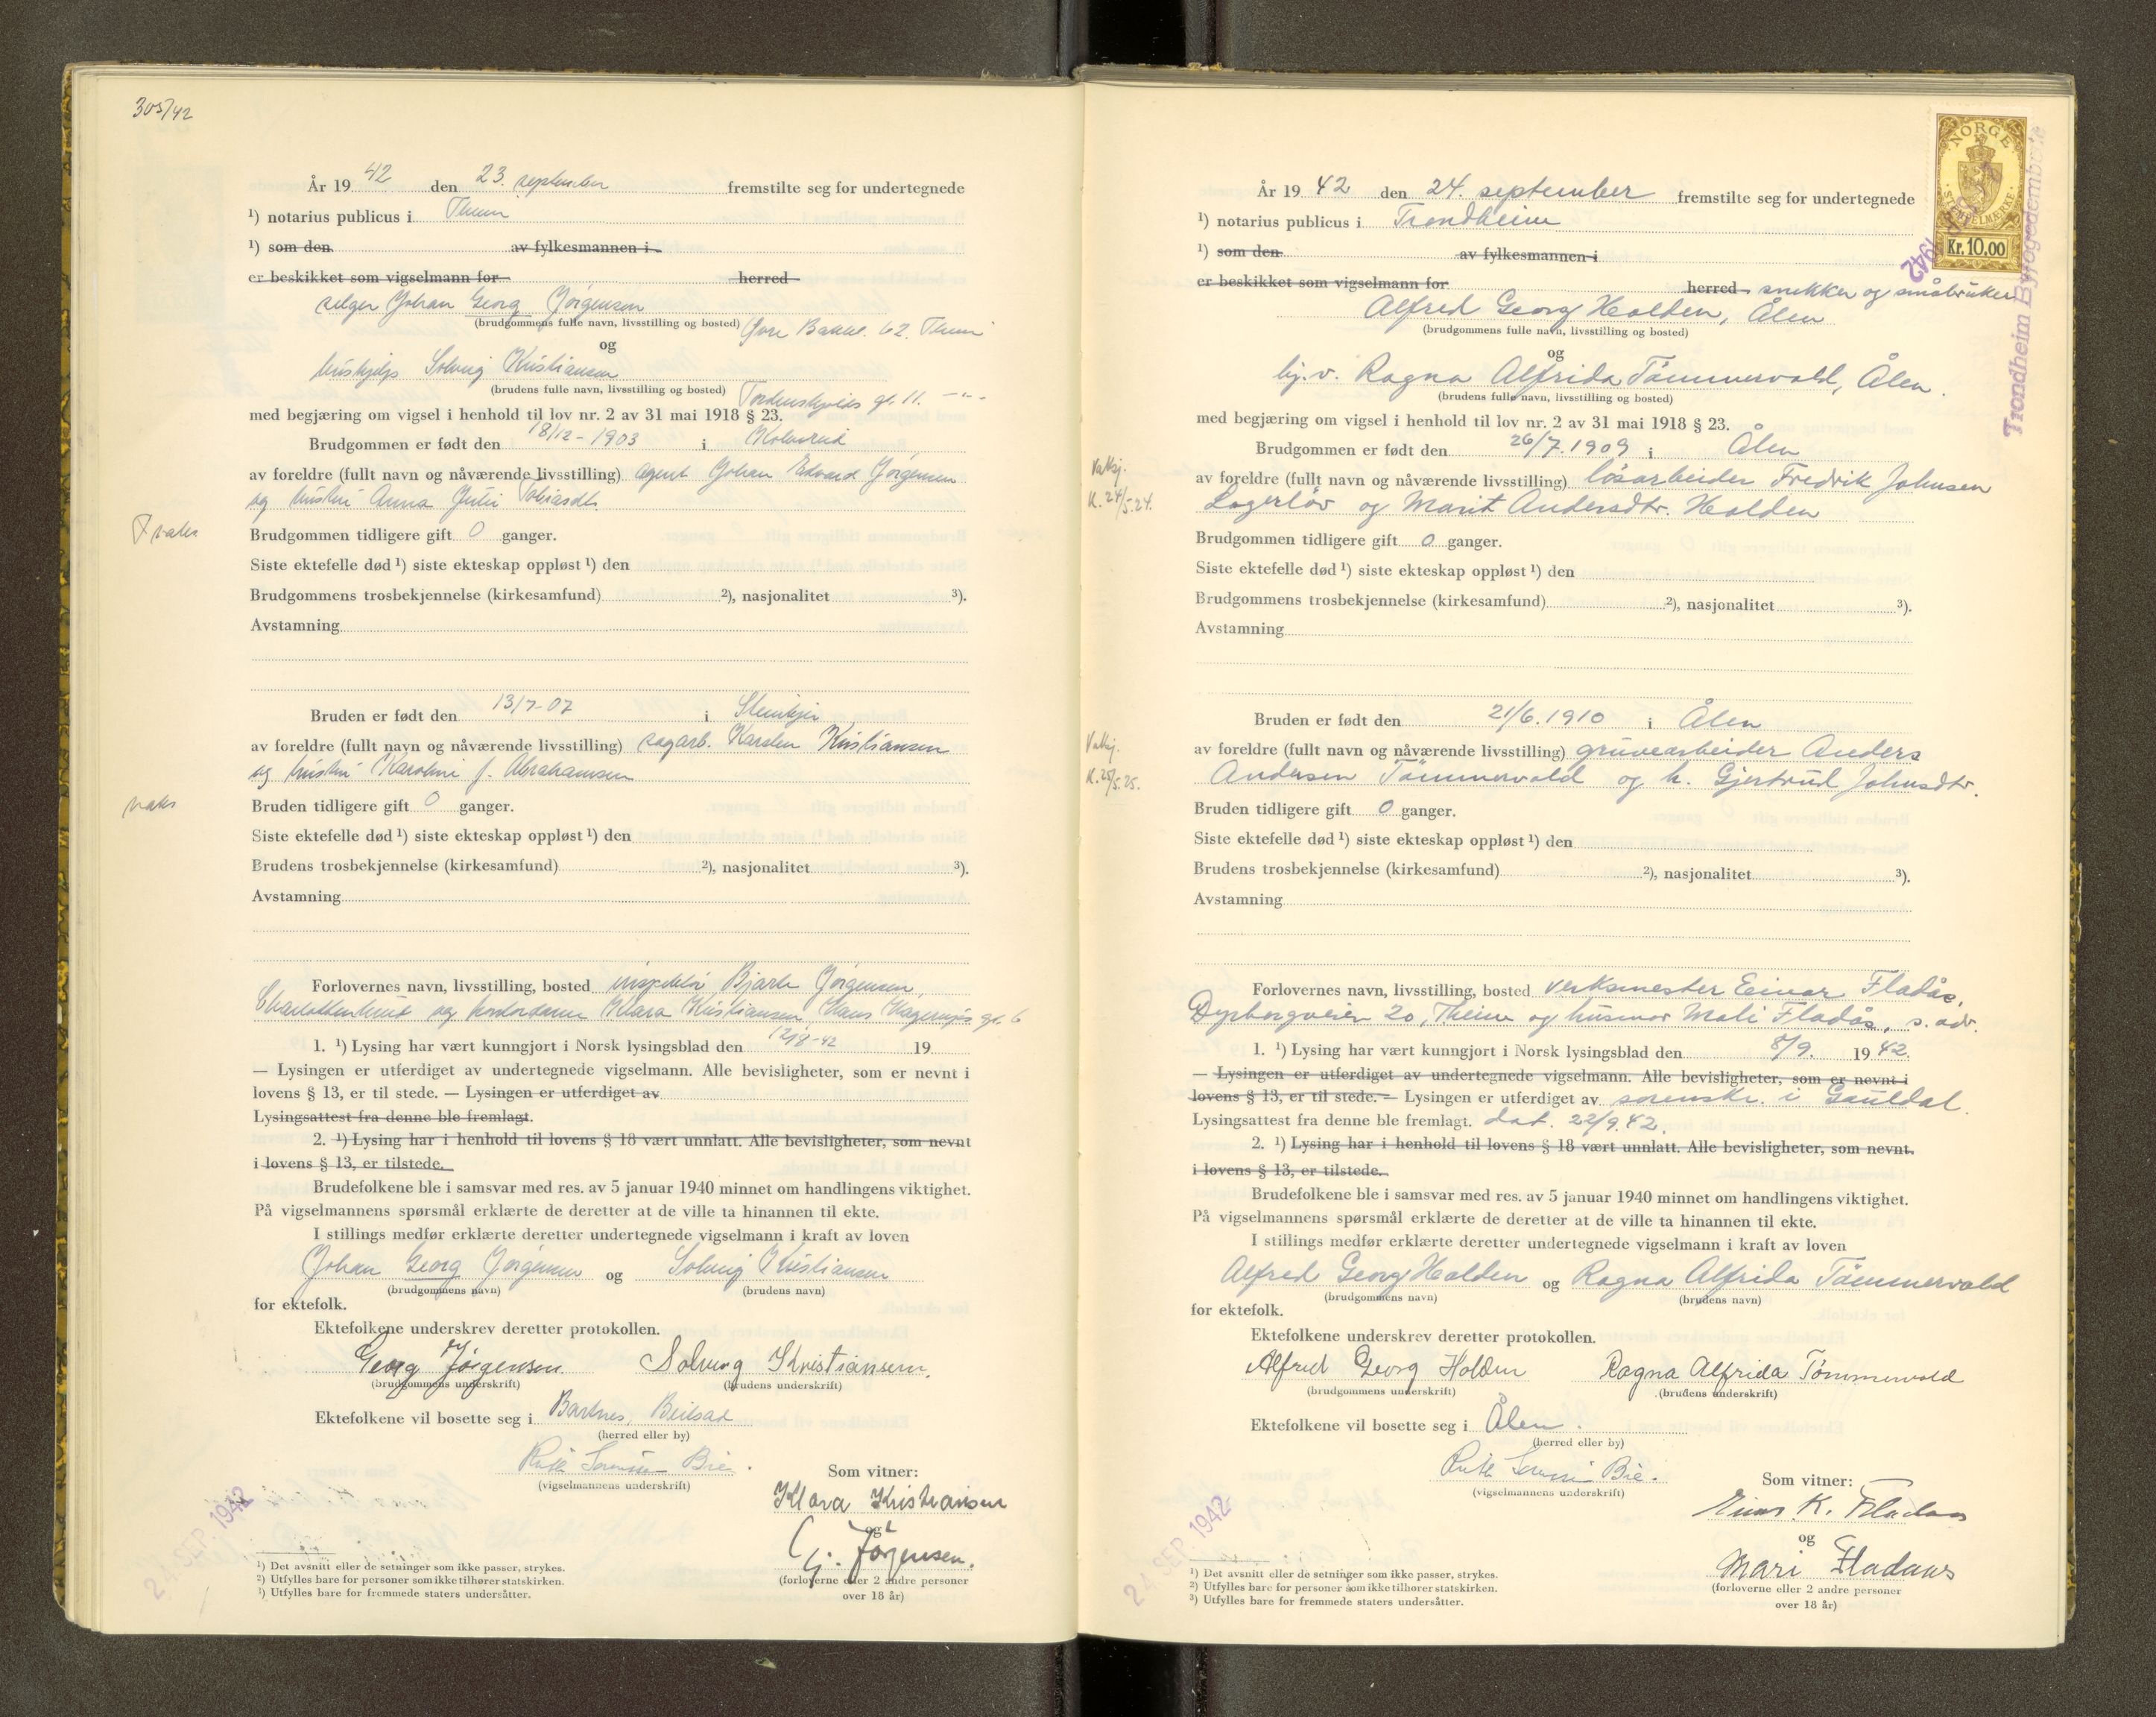 305/42
År 19 42 den 23. september fremstilte seg for undertegnede
¹) notarius publicus i Thm
¹) som den av fylkesmannen i
er beskikket som vigselmann for herred
selger Johan Georg Jörgensen
(brudgommens fulle navn, livsstilling og bosted) Øvre Bakkl. 62. Thm
og
hushjelp Solveig Kristiansen
(brudens fulle navn, livsstilling og bosted) Tordenskjolds gt. 11. -"-
med begjæring om vigsel i henhold til lov nr. 2 av 31 mai 1918 § 23.
Brudgommen er født den 18/12-1903 i
av foreldre (fullt navn og nåværende livsstilling) agent Johan Edvard Jörgensen
og hustru Anna Julie Tobiasdtr.
Brudgommen tidligere gift 0 ganger.
Siste ektefelle død ¹) siste ekteskap oppløst ¹) den
Brudgommens trosbekjennelse (kirkesamfund) ²), nasjonalitet ³).
Avstamning
Bruden er født den 13/7-07 i Steinkjer
av foreldre (fullt navn og nåværende livsstilling) sagarb. Karsten Kristiansen
og hustru Karoline f. Abrahamsen
vaks
Bruden tidligere gift 0 ganger.
Siste ektefelle død ¹) siste ekteskap oppløst ¹) den
Brudens trosbekjennelse (kirkesamfund) ²), nasjonalitet ³).
Avstamning
Forlovernes navn, livsstilling, bosted inspektör Bjarte Jörgensen,
Charlottenlund og Klara Kristiansen, Hans Hagerups gt. 6
1. ¹) Lysing har vært kunngjort i Norsk lysingsblad den 12/8-42 19
— Lysingen er utferdiget av undertegnede vigselmann. Alle bevisligheter, som er nevnt i
lovens § 13, er til stede. — Lysingen er utferdiget av
Lysingsattest fra denne ble fremlagt.
2. ¹) Lysing har i henhold til lovens § 18 vært unnlatt. Alle bevisligheter, som nevnt
i lovens § 13, er tilstede.
Brudefolkene ble i samsvar med res. av 5 januar 1940 minnet om handlingens viktighet.
På vigselmannens spørsmål erklærte de deretter at de ville ta hinannen til ekte.
I stillings medfør erklærte deretter undertegnede vigselmann i kraft av loven
Johan Georg Jörgensen og Solveig Kristiansen
(brudgommens navn) (brudens navn)
for ektefolk.
Ektefolkene underskrev deretter protokollen.
Georg Jörgensen. Solveig Kristiansen.
(brudgommens underskrift) (brudens underskrift)
Ektefolkene vil bosette seg i Bartnes, Beitstad
(herred eller by)
Ruth Sorenssen Bie.
(vigselmannens underskrift)
Som vitner:
Klara Kristiansen
og
Jörgensen.
(forloverne eller 2 andre personer
over 18 år)
24 SEP. 1942
¹) Det avsnitt eller de setninger som ikke passer, strykes.
²) Utfylles bare for personer som ikke tilhører statskirken.
³) Utfylles bare for fremmede staters undersåtter.
NORGE
STEMPELMERKE
Kr. 10.00
1942
Trondheim Byfogedembede
År 19 42 den 24. september fremstilte seg for undertegnede
¹) notarius publicus i Trondheim
¹) som den av fylkesmannen i
er beskikket som vigselmann for herred snekker og småbruker
Alfred Georg Holden, Ålen
(brudgommens fulle navn, livsstilling og bosted)
og
hj.v. Ragna Alfrida Tömmervold, Ålen.
(brudens fulle navn, livsstilling og bosted)
med begjæring om vigsel i henhold til lov nr. 2 av 31 mai 1918 § 23.
Brudgommen er født den 26/7.1909 i Ålen
av foreldre (fullt navn og nåværende livsstilling) lösarbeider Fredrik Johnsen
Lagerlöv og Marit Andersdtr. Holden
K. 24/5.24.
Brudgommen tidligere gift 0 ganger.
Siste ektefelle død ¹) siste ekteskap oppløst ¹) den
Brudgommens trosbekjennelse (kirkesamfund) ²), nasjonalitet ³).
Avstamning
Bruden er født den 21/6.1910 i Ålen
av foreldre (fullt navn og nåværende livsstilling) gruvearbeider Anders
Andersen Tömmervold og h. Gjertrud Johnsdtr.
K. 25/5.25.
Bruden tidligere gift 0 ganger.
Siste ektefelle død ¹) siste ekteskap oppløst ¹) den
Brudens trosbekjennelse (kirkesamfund) ²), nasjonalitet ³).
Avstamning
Forlovernes navn, livsstilling, bosted verksmester Einar Fladås,
Dyrborgveien 20, Theim og husmor Mali Fladås, s. adr.
1. ¹) Lysing har vært kunngjort i Norsk lysingsblad den 8/9. 19 42.
— Lysingen er utferdiget av undertegnede vigselmann. Alle bevisligheter, som er nevnt i
lovens § 13, er til stede. — Lysingen er utferdiget av sorenskr. i Gauldal.
Lysingsattest fra denne ble fremlagt. dat. 22/9.42.
2. ¹) Lysing har i henhold til lovens § 18 vært unnlatt. Alle bevisligheter, som nevnt.
i lovens § 13, er tilstede.
Brudefolkene ble i samsvar med res. av 5 januar 1940 minnet om handlingens viktighet.
På vigselmannens spørsmål erklærte de deretter at de ville ta hinannen til ekte.
I stillings medfør erklærte deretter undertegnede vigselmann i kraft av loven
Alfred Georg Holden og Ragna Alfrida Tömmervold
(brudgommens navn) (brudens navn)
for ektefolk.
Ektefolkene underskrev deretter protokollen.
Alfred Georg Holden Ragna Alfrida Tömmervold
(brudgommens underskrift) (brudens underskrift)
Ektefolkene vil bosette seg i Ålen.
(herred eller by)
Ruth Sorenssen Bie.
(vigselmannens underskrift)
Som vitner:
Einar K. Fladaas
og
Mari Fladaas
(forloverne eller 2 andre personer
over 18 år)
24 SEP. 1942
¹) Det avsnitt eller de setninger som ikke passer, strykes.
²) Utfylles bare for personer som ikke tilhører statskirken.
³) Utfylles bare for fremmede staters undersåtter.